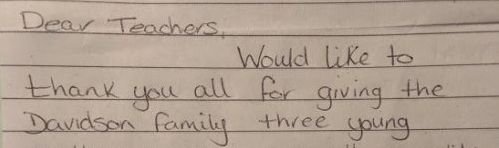 Dear Teachers,
Would like to
thank you all for giving the
Davidson family three young